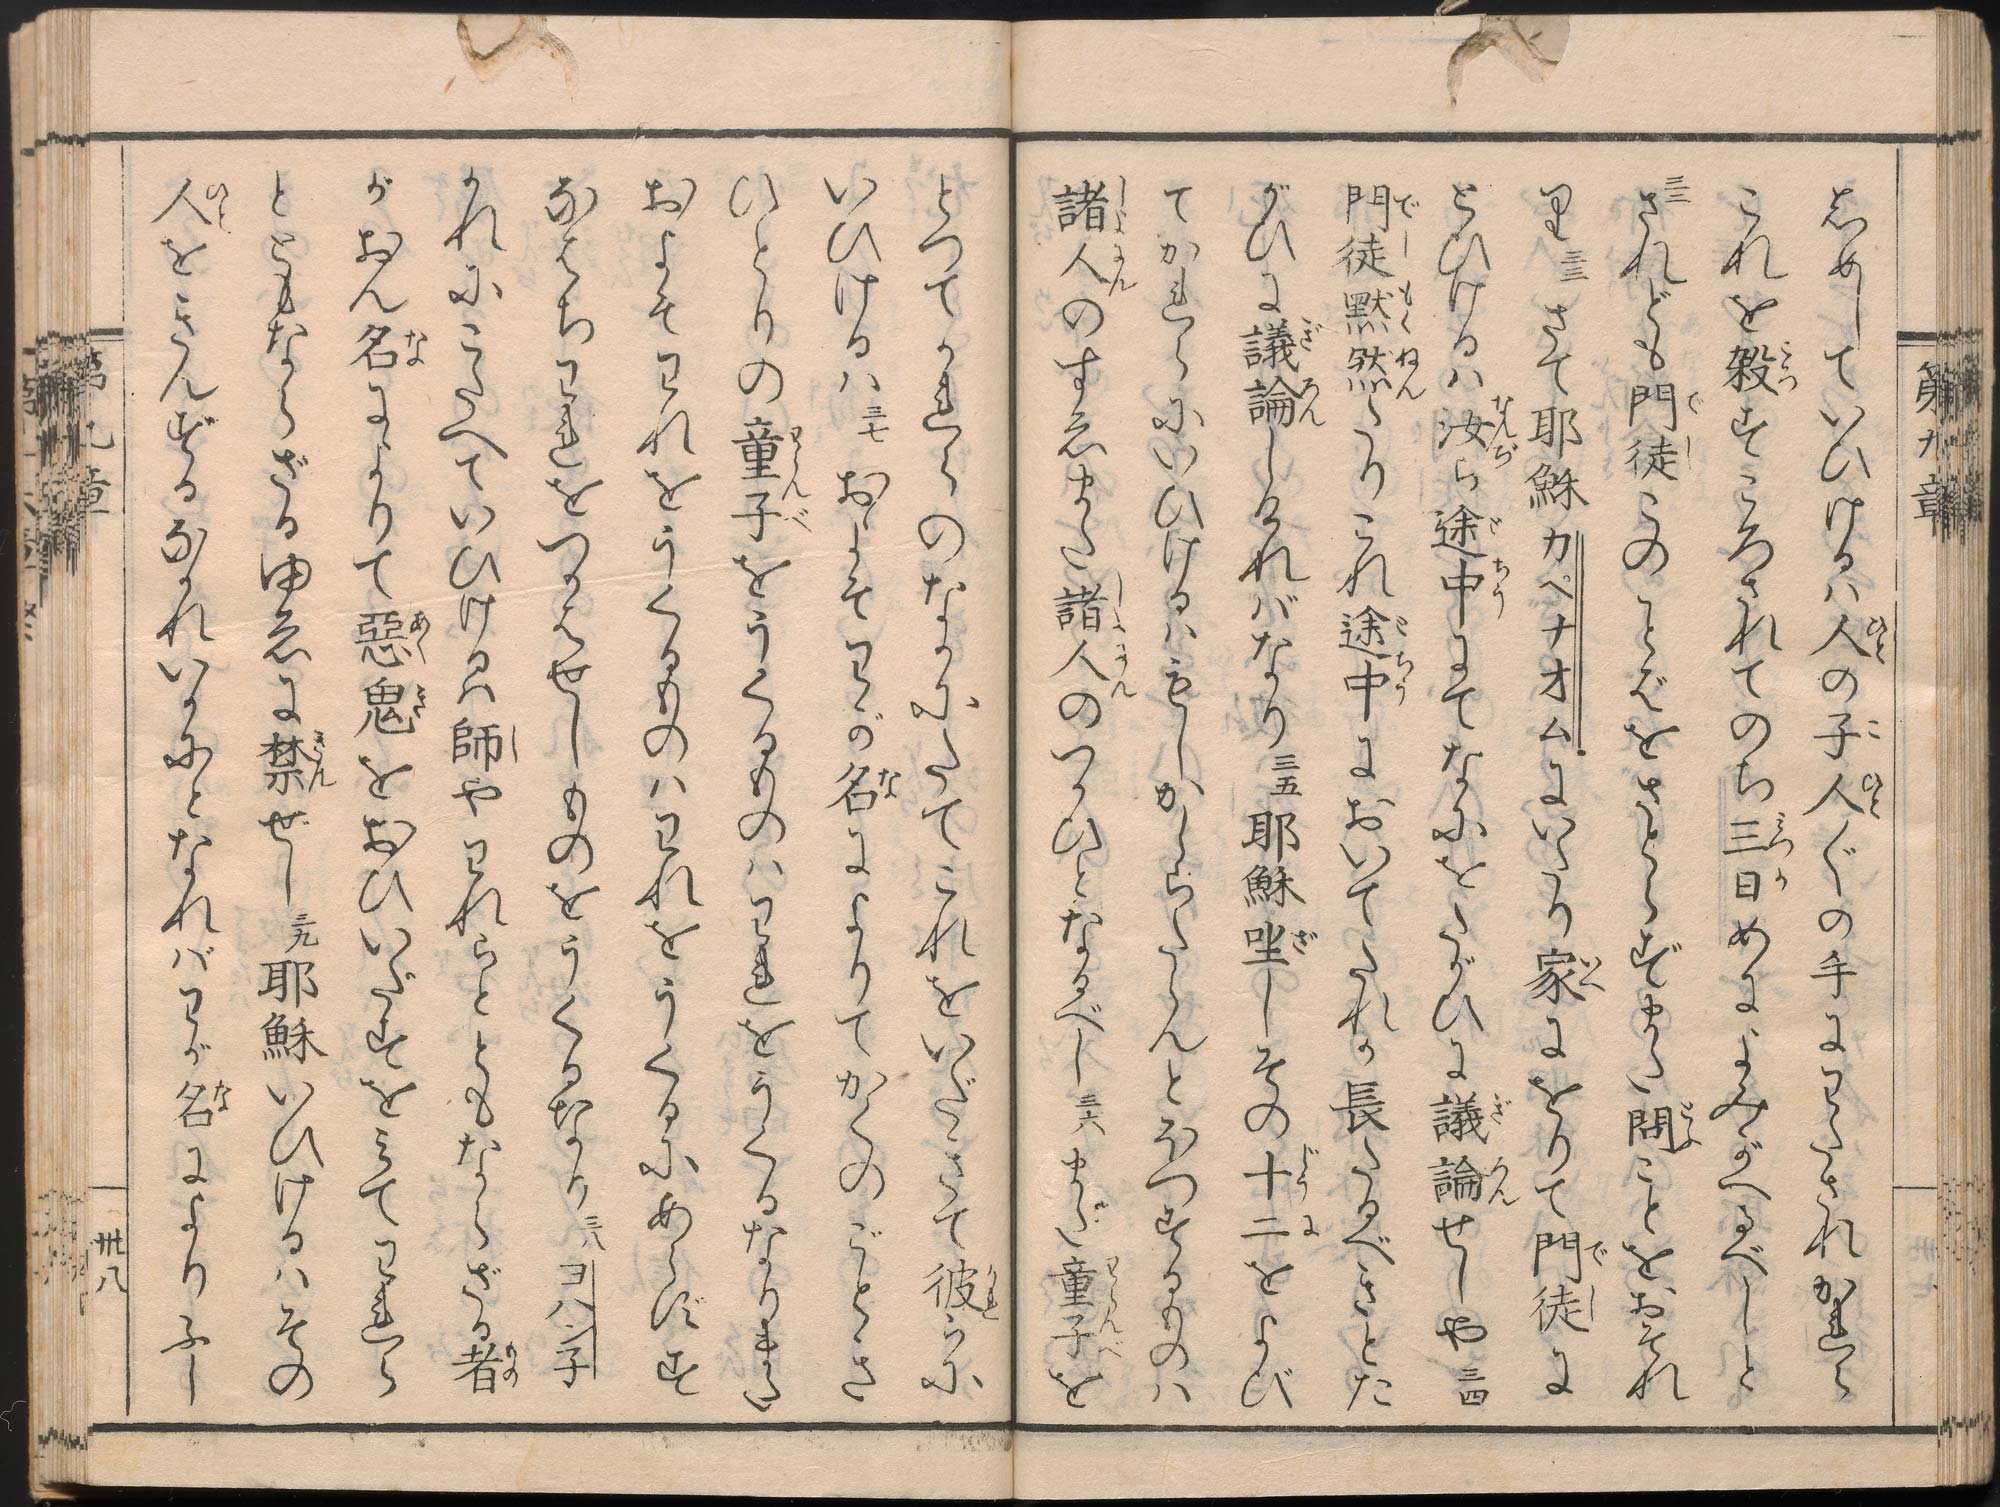 第九章
志めしていひけるハ人の子人〲の手にわたされかれら
これを殺せころされてのち三日めによみがへるべしと
三二されども門徒このことばをさとらずまた問ことをおそれ
り三三さて耶穌カペナオムにいたり家にをりて門徒に
とひけるハ汝ら途中にてなにをたがひに議論せしや三四
門徒默然たりこれ途中においてたれか長たるべきとた
がひに議論しければなり三五耶穌坐しその十二をよび
てかれらにいひけるハもしかしらたらんとほつするものハ
諸人のすゑまた諸人のつかひとなるべし三六また童子を
とつてかれらのなかにたてこれをいだきて彼らに
いひけるハ三七おほよそわが名によりてかくのごとき
ひとりの童子をうくるものハわれをうくるなりまた
およそわれをうくるものハわれをうくるにあらずす
なはちわれをつかはせしものをうくるなり三八ヨハン子
かれにこたへていひけるハ師やわれらとともならざる者
がおん名によりて惡鬼をおひいだすをみてわれら
とともならざるゆゑに禁ぜし三九耶穌いひけるハその
人をきんずるなかれいかにとなれバわが名によりふし
丗八